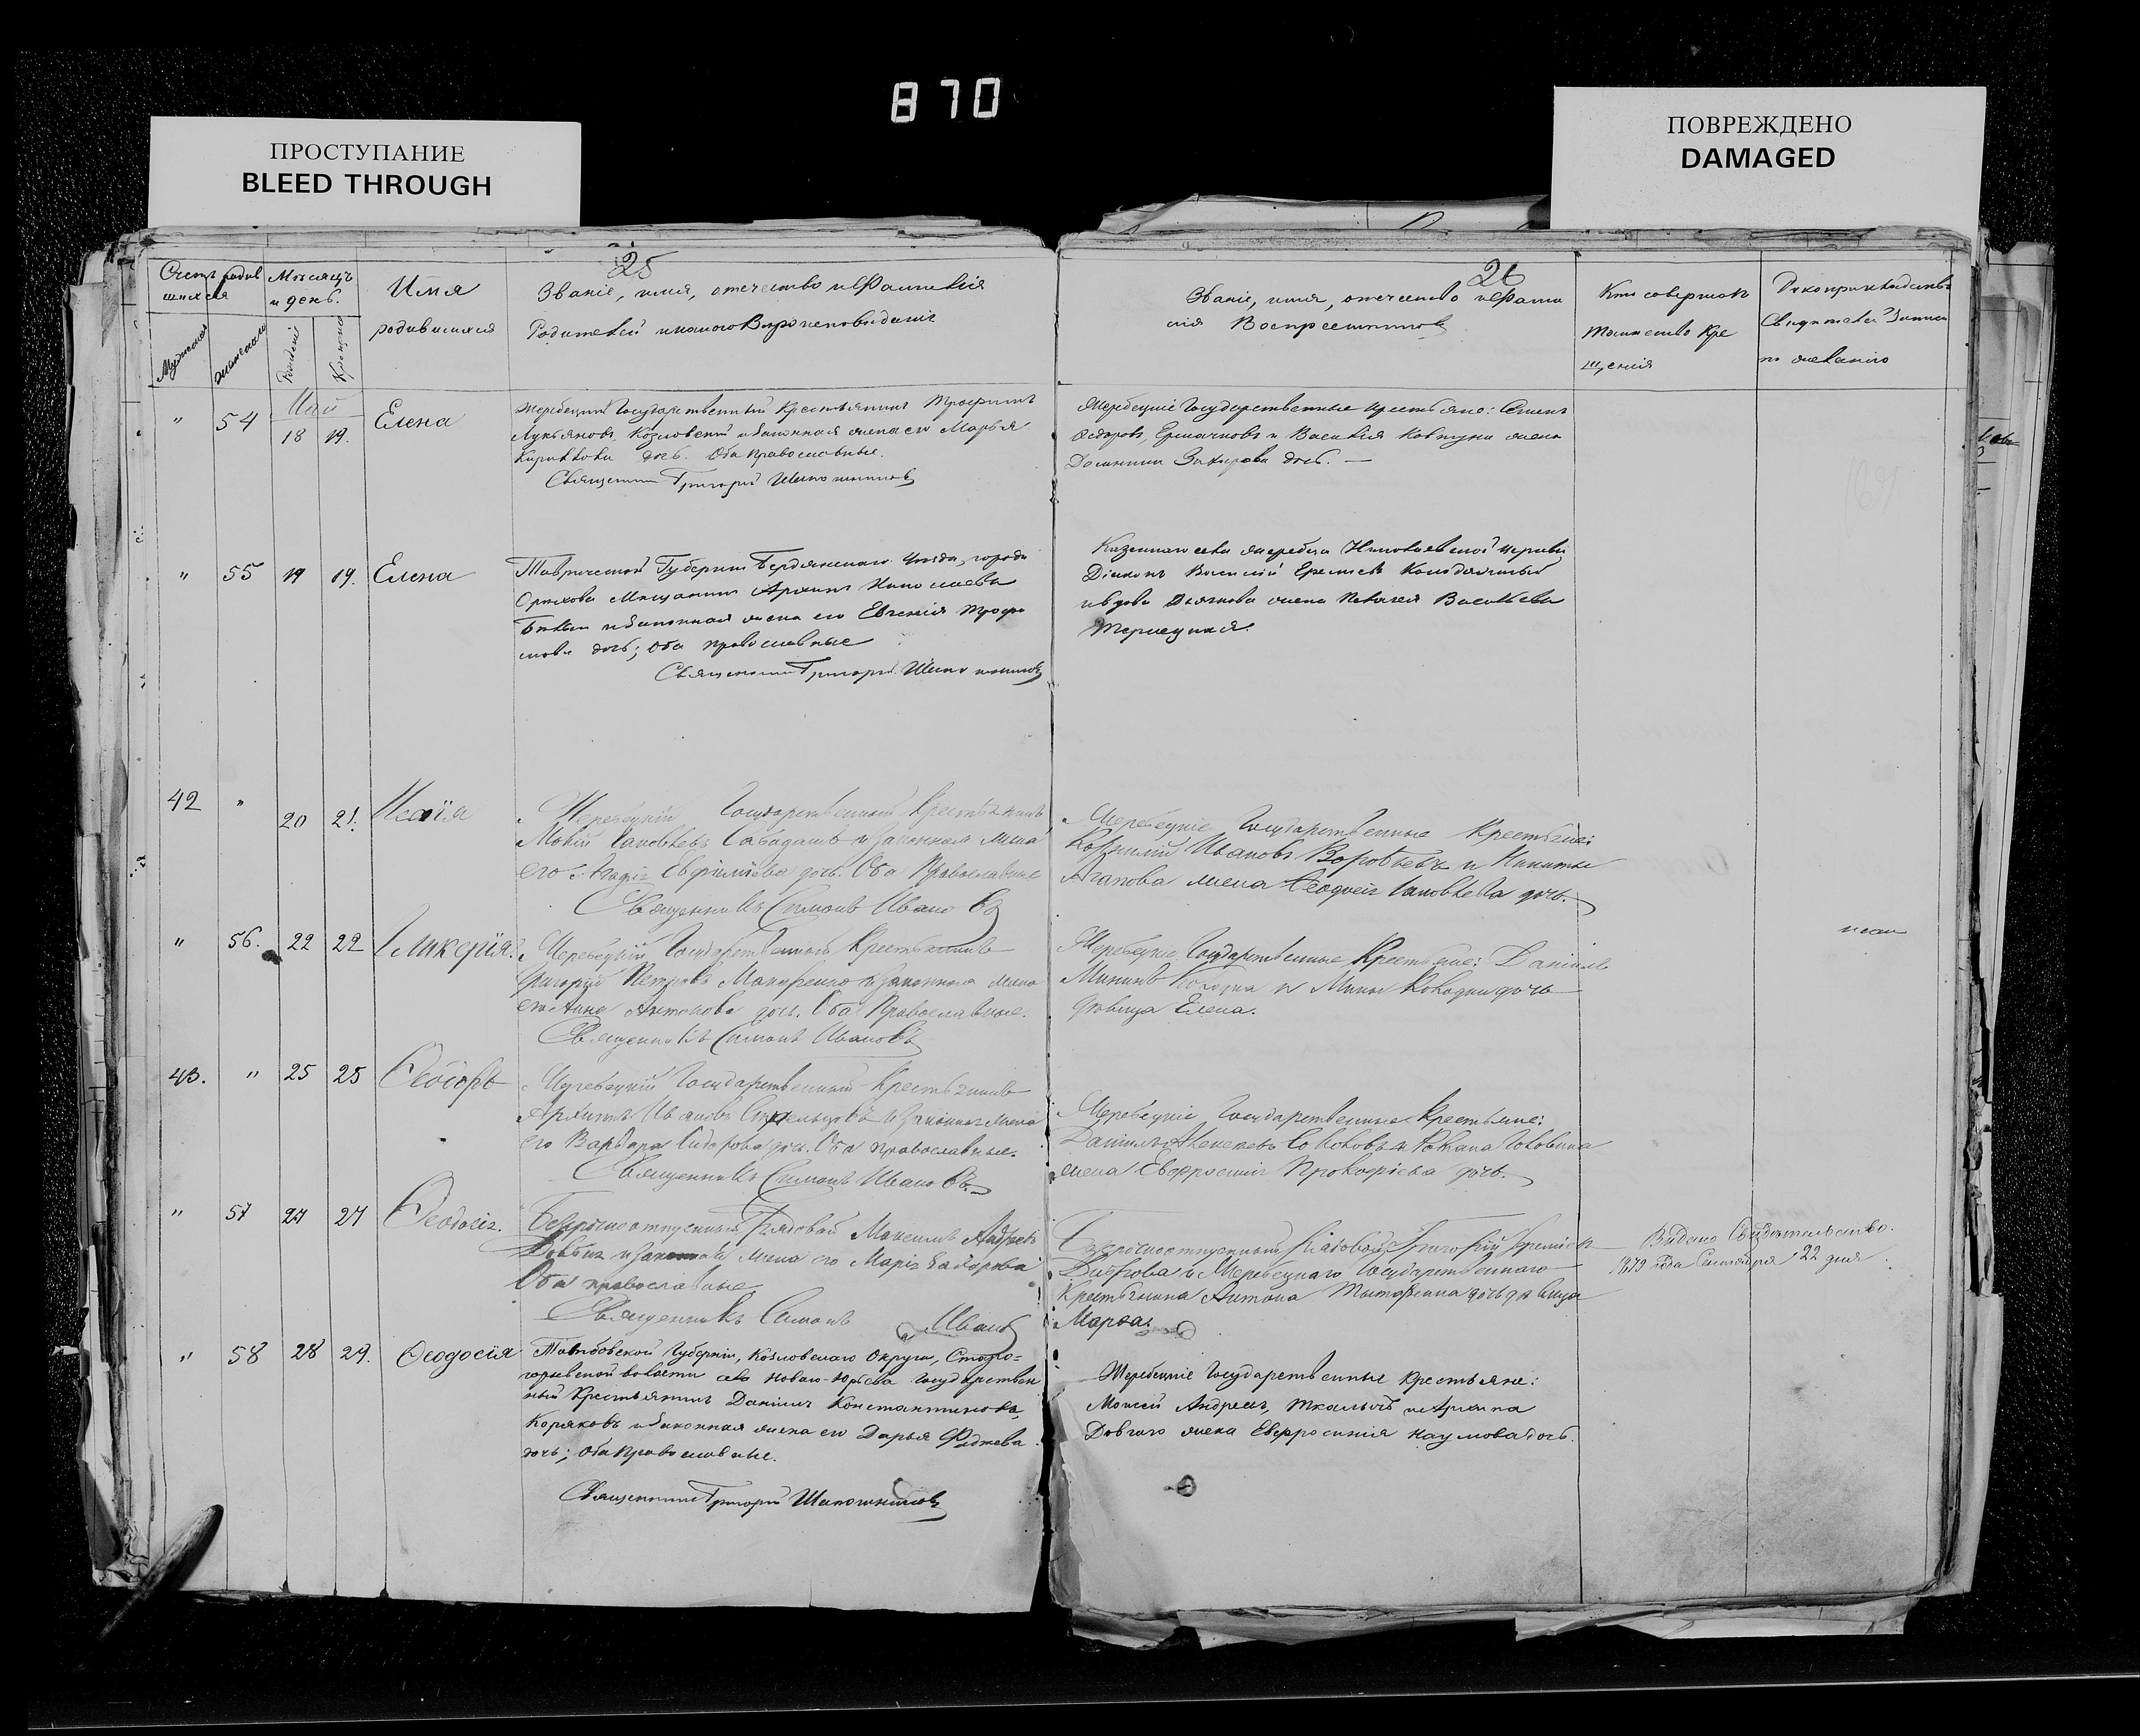 870
ПРОСТУПАНИЕ
BLEED THROUGH
ПОВРЕЖДЕНО
DAMAGED
25
26
Счетъ родив
шихся
Мѣсяцъ
и день.
Имя
родившихся
Званіе, имя, отечество и Фамилія
Родителей и какого Вѣроисповѣданія
Званіе, имя, отечество и Фами
лія Воспреемниковъ
Кто совершалъ
таинство Кре
щенія
Рукоприкладство
Свидѣтелей записи
по желанію
Мужеска
женска
Рожденія
Крещенія
Май
" 54 18 19. Елена
Жеребецкій Государственный Крестьянинъ Трофимъ
Лукьяновъ Козловскій и законная жена его Марья
Кириллова дочь. Оба православные.
Священникъ Григорій Шапошниковъ
Жеребецкіе Государственные крестьяне: Семенъ
Федоровъ, Ермачковъ и Василія Ковтуна жена
Домникія Захарова дочь. —
" 55 19 19. Елена
Таврической Губерніи Бердянскаго Уѣзда, города
Орѣхова Мещанинъ Архипъ Николаевъ
и законная жена его Евгенія Трофи
мова дочь; оба православные
Священникъ Григорій Шапошниковъ
Казеннаго села Жеребца Николаевской церкви
Діаконъ Василій
и вдова Дьячкова жена Пелагея Васильева
42 " 20 21. Исаія
Жеребецкій Государственный Крестьянинъ
Мокій Іаковлевъ Сабадашъ и законная жена
его Евфиміева дочь. Оба Православные
Священникъ Симонъ Ивановъ
Жеребецкіе Государственные Крестьяне:
Корнилій Ивановъ Воробьевъ и Никиты
Агапова жена Ѳеодосія Іаковлева дочь.
" 56. 22 22 Гликерія.
Жеребецкій Государственный Крестьянинъ
Григорій Петровъ Макаренко и законная жена
его Анна Антонова дочь. Оба Православные.
Священникъ Симонъ Ивановъ
Жеребецкіе Государственные Крестьяне: Даніилъ
Мининъ и Мины дочь
дѣвица Елена.
43. " 25 25 Ѳеодоръ
Жеребецкій Государственный Крестьянинъ
Архипъ Ивановъ и законная жена
его Варвара Сидорова дочь. Оба православные.
Священникъ Симонъ Ивановъ.
Жеребецкіе Государственные Крестьяне:
Даніилъ
жена Евфросинія Прокофіева дочь.
" 57 27 27 Ѳеодосія.
Безсрочноотпускный Рядовой Максимъ Андреевъ
и законная жена его Марія
Оба православные
Священникъ Симонъ Ивановъ
Безсрочноотпускный Рядовой Григорій
и Жеребецкаго Государственнаго
Крестьянина Антона дочь дѣвица
Марѳа.
Выдано Свидѣтельство.
1879 года Сентября 22 дня
" 58 28 29. Ѳеодосія
Тамбовской Губерніи, Козловскаго Округа, Старо-
юрьевской волости села Новаго-Юрьева Государствен
ный Крестьянинъ Даніилъ Константиновъ,
Коряковъ и законная жена его Дарья
дочь; оба православные.
Священникъ Григорій Шапошниковъ
Жеребецкіе Государственные крестьяне:
Моисей Андреевъ, Ткалычъ и Архипа
Довгаго жена Евфросинія Наумова дочь.